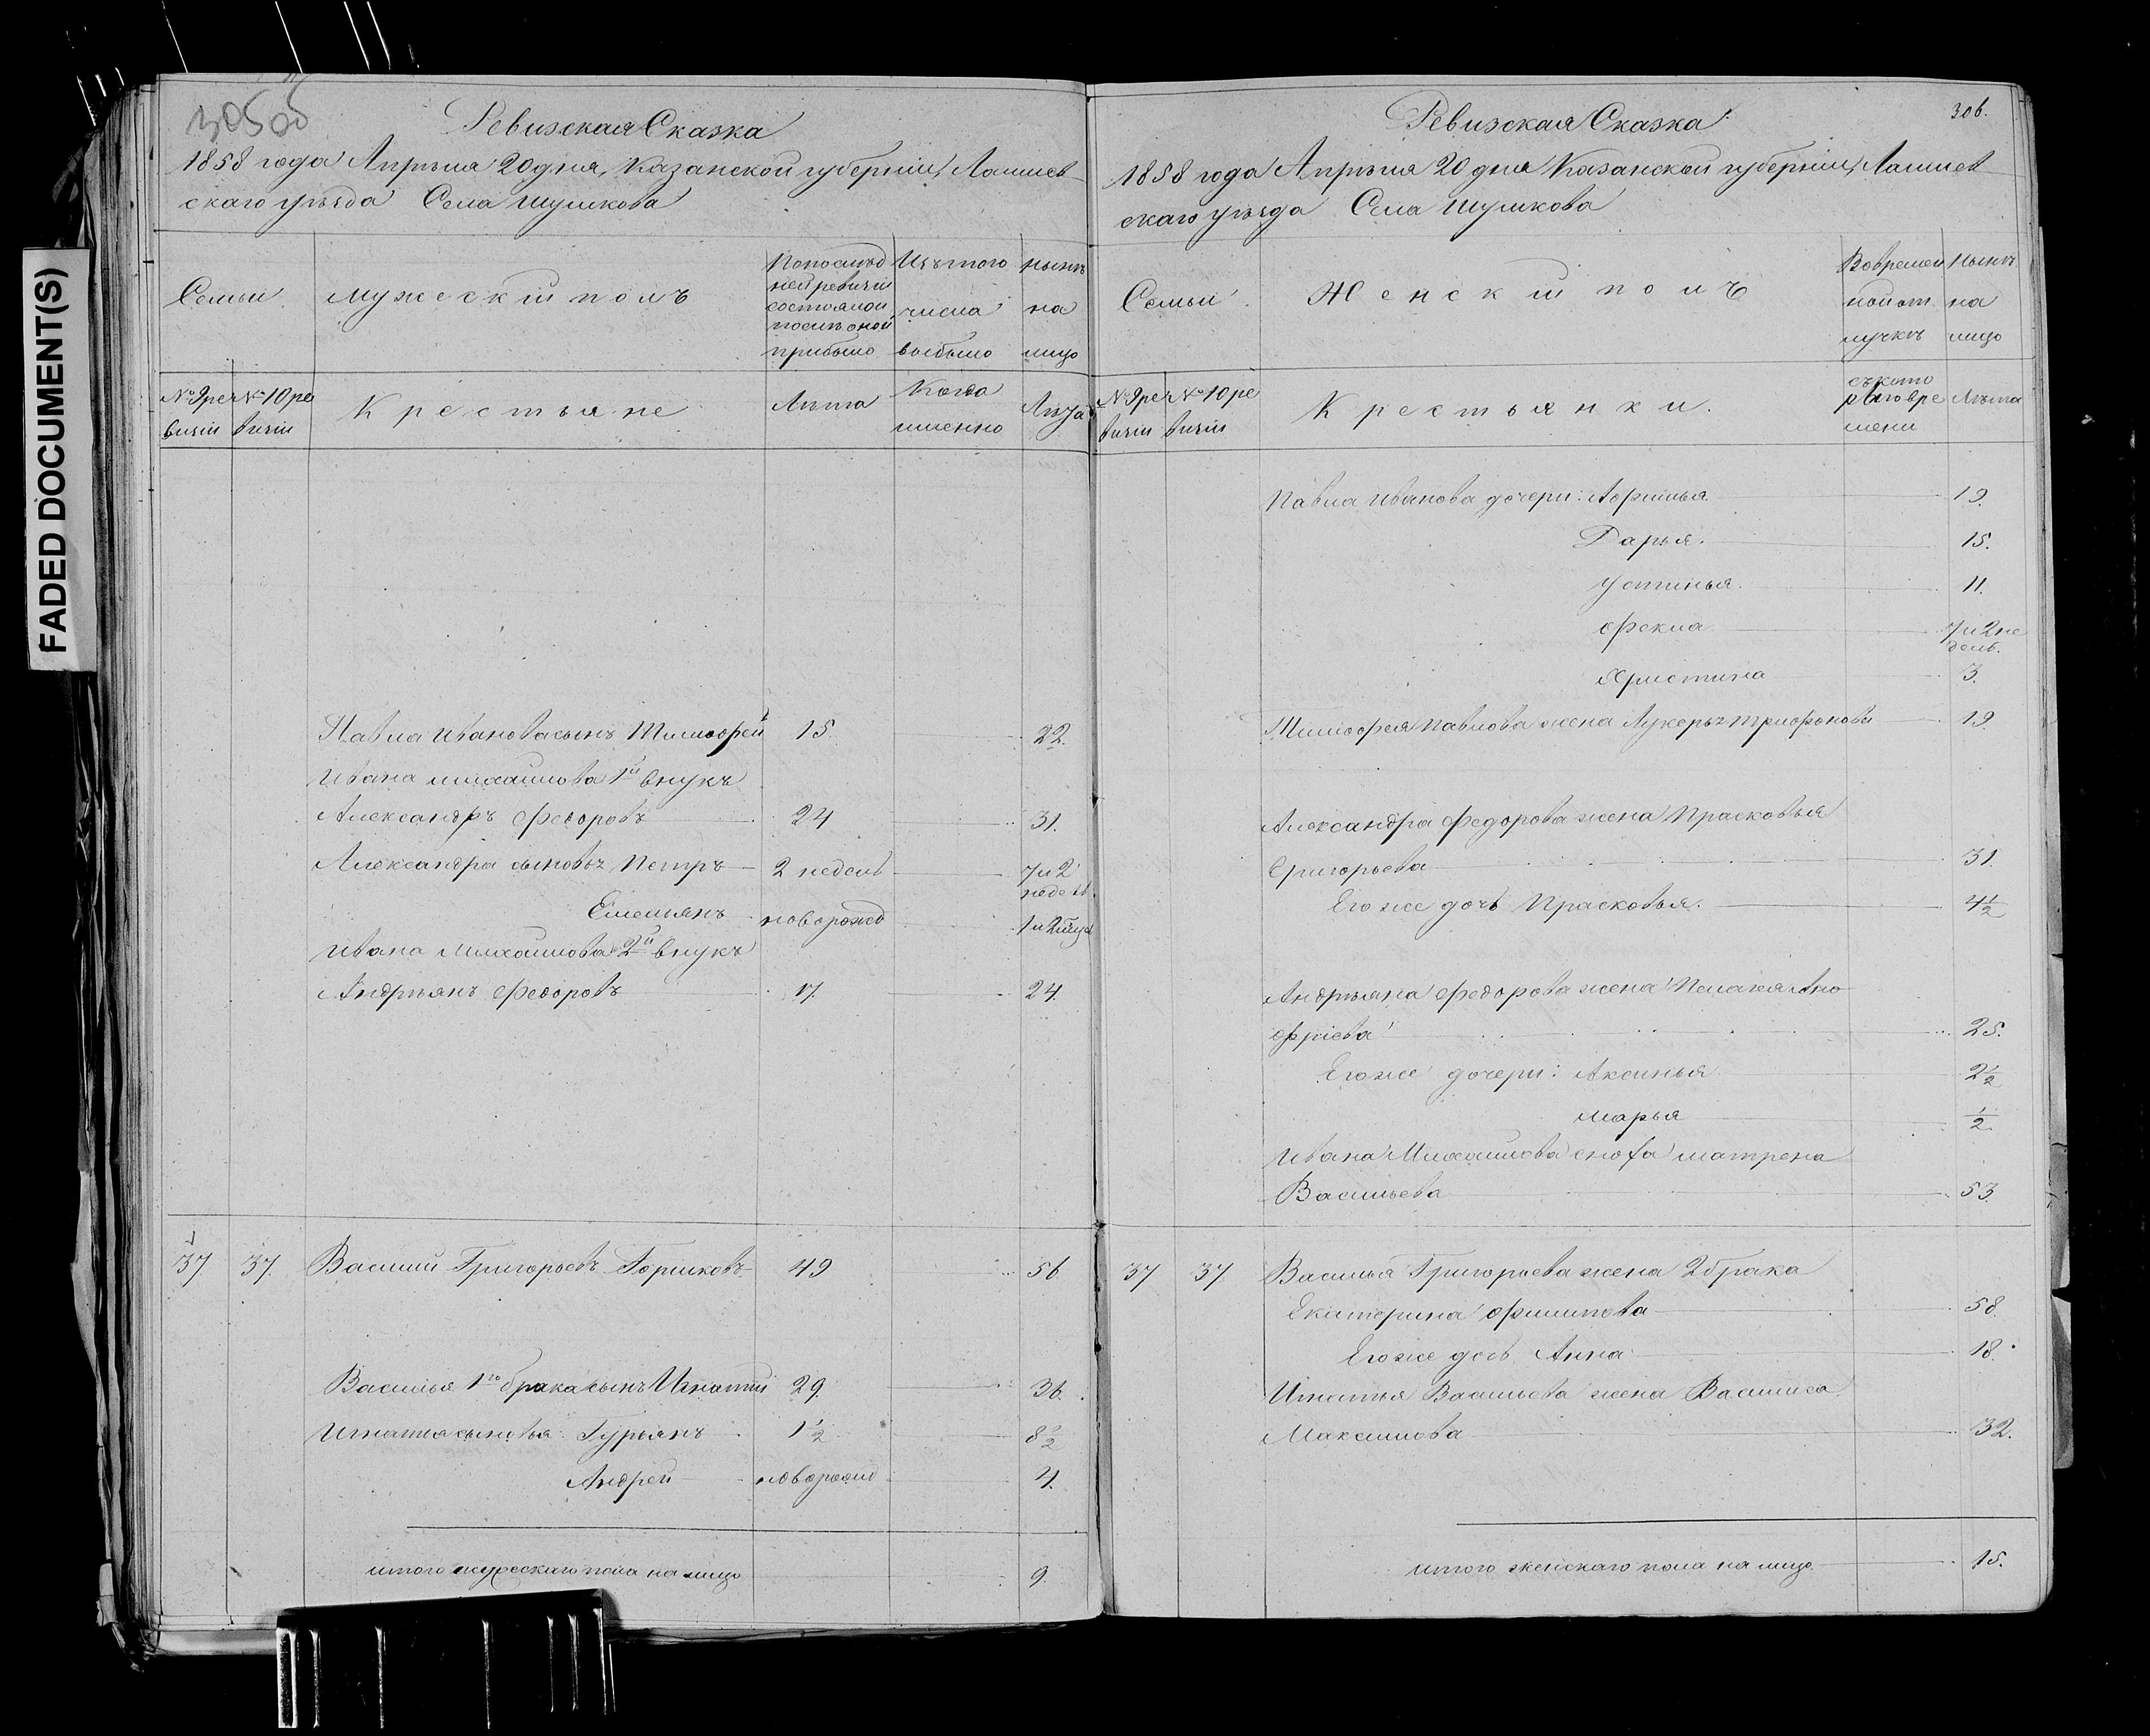 FADED DOCUMENT(S)
Ревизская Сказка
1858 года Апрѣля 20 дня, Казанской губернiи, Лаишев
скаго уѣзда Села Шумкова
Семьи
мужескiй полъ
По послѣд
ней ревизiи
состояло и
послѣ оной
прибыло
Изъ того
числа
выбыло
нынѣ
на
лицо
№ 9 ре
визiи
№ 10 ре
визiи
Крестьяне
Лѣта
Когда
именно
Лѣта
Павла Иванова сынъ Тимофей 15. 22.
Ивана Михайлова 1й внукъ
Александръ Федоровъ 24 31.
Александра сыновья Петръ 2 недель 7 и 2
недель.
Емельянъ новорожд 1 и 2 мѣся
Ивана Михайлова 2й внукъ
Андреянъ Федоровъ 17. 24.
37. 37. Василий Григорьевъ Горшковъ 49 56
Василья 1го брака сынъ Игнатий 29. 36.
Игнатья сыновья: Гурьянъ 1 1/2 8 1/2
Андрей новорожд 4.
итого мужескаго пола на лицо 9.
306.
Ревизская Сказка
1858 года Апрѣля 20 дня Казанской губернiи, Лаишев
скаго уѣзда Села Шумкова
Семьи
Женскiй полъ
Во времен
ной от
лучкѣ
нынѣ
на
лицо
№ 9 ре
визiи
№ 10 ре
визiи
Крестьянки.
съ кото
раго вре
мени
Лѣта
Павла Иванова дочери: Афимья 19.
Дарья. 15.
Устинья. 11.
Фекла 7 и 2 не
дель.
Христина 3.
Тимофея Павлова жена Лукерья Трифонова 19
Александра Федорова жена Прасковья
Григорьева 31.
Его же дочь Прасковья. 4 1/2
Андреяна Федорова жена Пелагея Ано
фрiева 25.
Его же дочери: Аксинья 2 1/2
Марья 1/2
Ивана Михайлова сноха Матрена
Васильева 53.
37 37. Василья Григорьева жена 2 брака
Екатерина Филипова 58.
Его же дочь Анна 18.
Игнатья Васильева жена Василиса
Максимова 32.
итого женскаго пола на лицо 15.